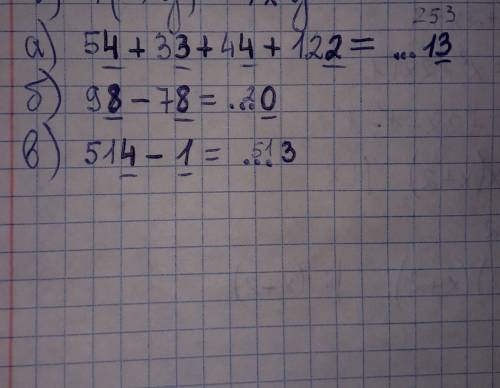 253
а) 54 + 33 + 44 + 122 = ...13
б) 98 - 78 = ...20
в) 514 - 1 = ...513